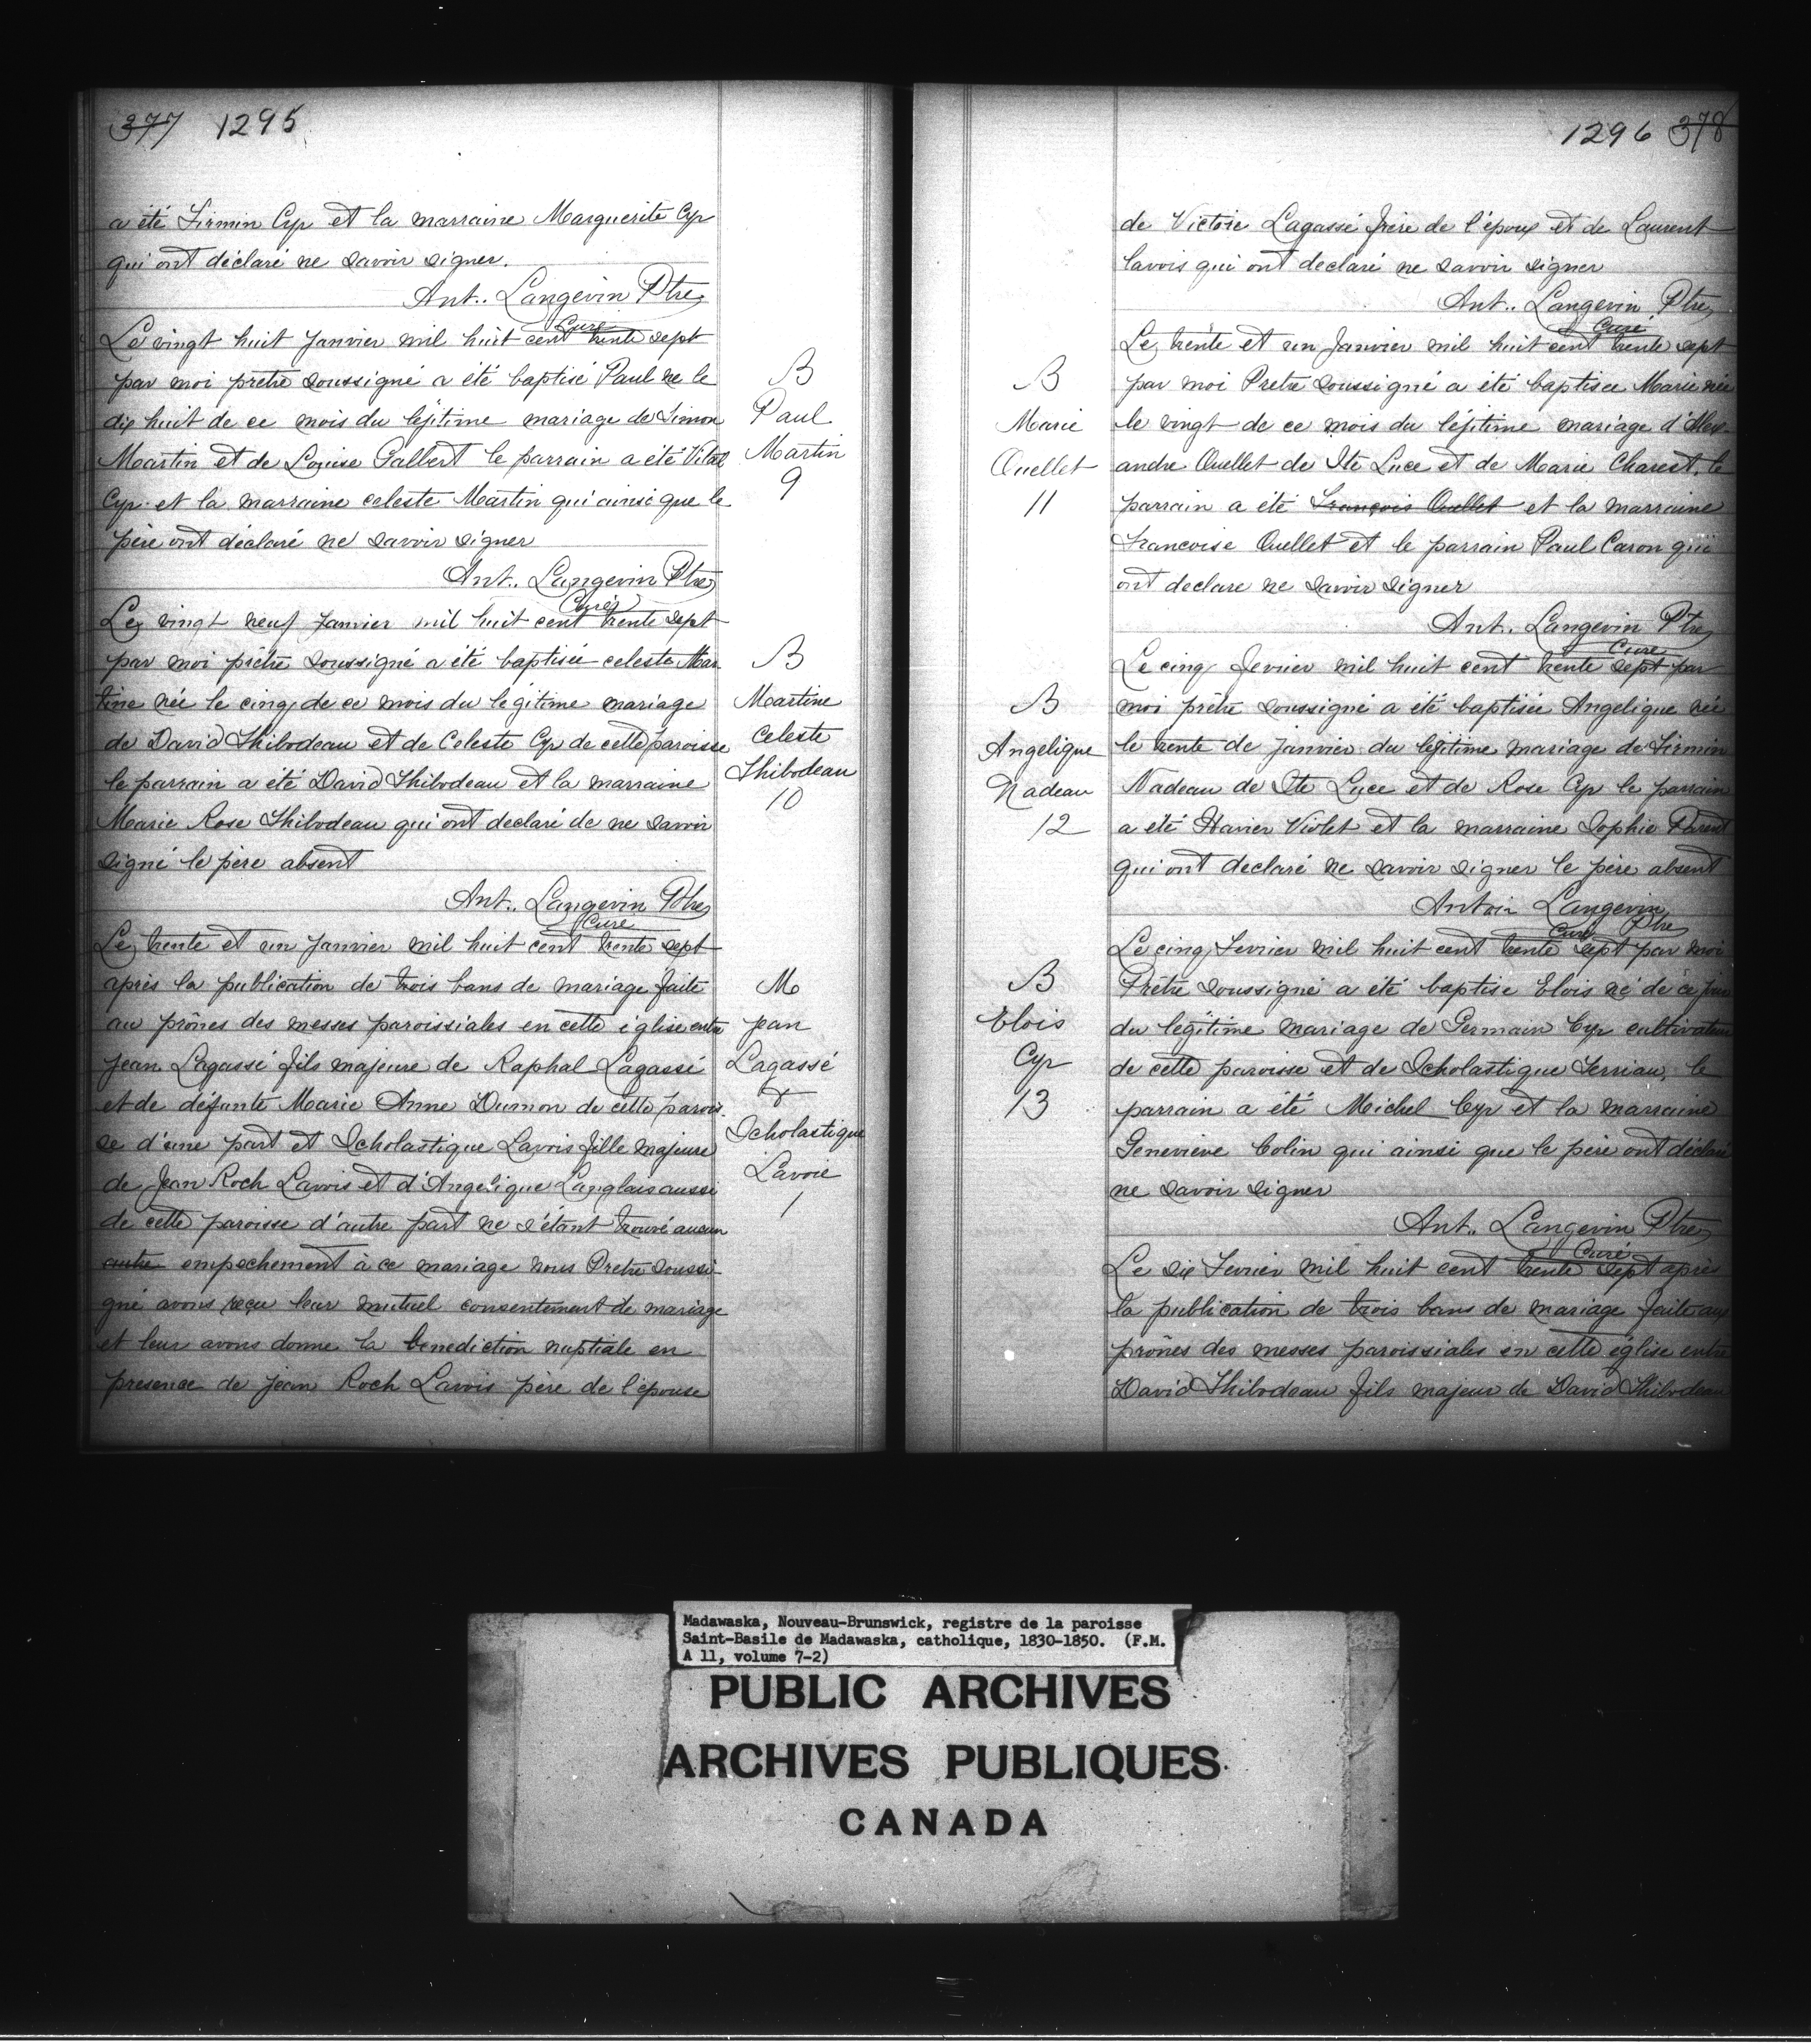 377 1295
a été Firmin Cyr et la marraine Marguerite Cyr
qui ont déclaré ne savoir signer.
Ant.. Langevin Ptre
Curé
Le vingt huit Janvier mil huit cent trente sept
par moi prêtre soussigné a été baptisé Paul ne le
dix huit de ce mois du légitime mariage de Simon
Martin et de Louise Galbert le parrain a été Vital
Cyr et la marraine celeste Martin qui ainsi que le
père ont déclaré ne savoir signer
Ant.. Langevin Ptre
Curé
B
Paul
Martin
9
Le vingt neuf Janvier mil huit cent trente sept
par moi prêtre soussigné a été baptisée celeste Mar
tine née le cinq de ce mois du legitime mariage
de David Thibodeau et de Celeste Cyr de cette paroisse
le parrain a été David Thibodeau et la marraine
Marie Rose Thibodeau qui ont declaré de ne savoir
signé le père absent
Ant.. Langevin Ptre
Curé
B
Martine
Celeste
Thibodeau
10
Le trente et un Janvier mil huit cent trente sept
après la publication de trois bans de mariage faite
au prônes des messes paroissiales en cette église entre
Jean Lagassé fils majeure de Raphal Lagassé
et de défunte Marie Anne Dumon de cette parois
se d'une part et Scholastique Lavois fille majeure
de Jean Roch Lavois et d'Angelique Langlais aussi
de cette paroisse d'autre part ne s'étant trouvé aucun
autre empechement à ce mariage nous Pretre soussi
gné avons reçu leur mutuel consentement de mariage
et leur avons donne la benediction nuptiale en
presence de Jean Roch Lavois père de l'épouse
M
Jean
Lagassé
&
Scholastique
Lavoie
1
1296 378
de Victoie Lagassé frère de l'époux et de Laurent
lavois qui ont declaré ne savoir signer
Ant.. Langevin Ptre
Curé
Le trente et un Janvier mil huit cent trente sept
par moi Pretre soussigné a été baptisee Marie née
le vingt de ce mois du légitime mariage d'Alex
andre Ouellet de Ste Luce et de Marie Charest, le
parrain a été François Ouellet et la marraine
Francoise Ouellet et le parrain Paul Caron qui
ont declare ne savoir signer
Ant. Langevin Ptre
Cure
B
Marie
Ouellet
11
Le cinq Fevrier mil huit cent trente sept par
moi prêtre soussigné a été baptisée Angelique née
le trente de Janvier du légitime mariage de Firmin
Nadeau de Ste Luce et de Rose Cyr le parrain
a été Xavier Violet et la marraine Sophie Parent
qui ont declaré ne savoir signer le père absent
Antoin Langevin
Curé Ptre
B
Angelique
Nadeau
12
Le cinq Fevrier mil huit cent trente sept par moi
Prêtre soussigné a été baptise Elois né de ce jour
du legitime mariage de Germain Cyr cultivateur
de cette paroisse et de Scholastique Terriau, le
parrain a été Michel Cyr et la marraine
Genevieve Colin qui ainsi que le père ont déclaré
ne savoir signer
Ant.. Langevin Ptre
Curé
B
Elois
Cyr
13
Le six Fevrier mil huit cent trente sept après
la publication de trois bans de mariage faite aux
prônes des messes paroissiales en cette église entre
David Thibodeau fils majeur de David Thibodeau
Madawaska, Nouveau-Brunswick, registre de la paroisse
Saint-Basile de Madawaska, catholique, 1830-1850. (F.M.
A 11, volume 7-2)
PUBLIC ARCHIVES
ARCHIVES PUBLIQUES
CANADA